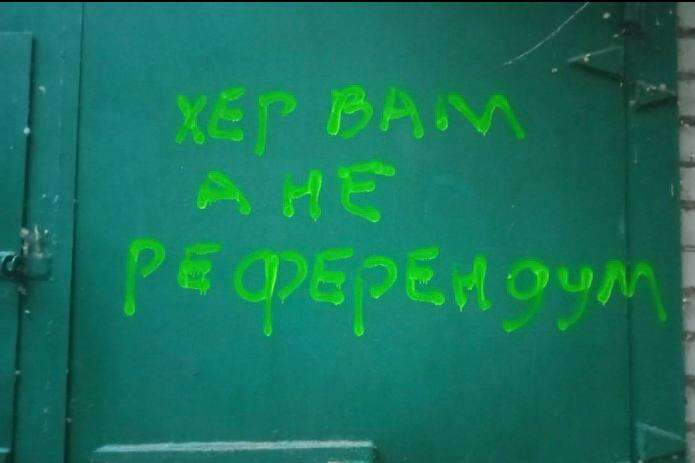 ХЕР ВАМ
А НЕ
РЕФЕРЕНДУМ